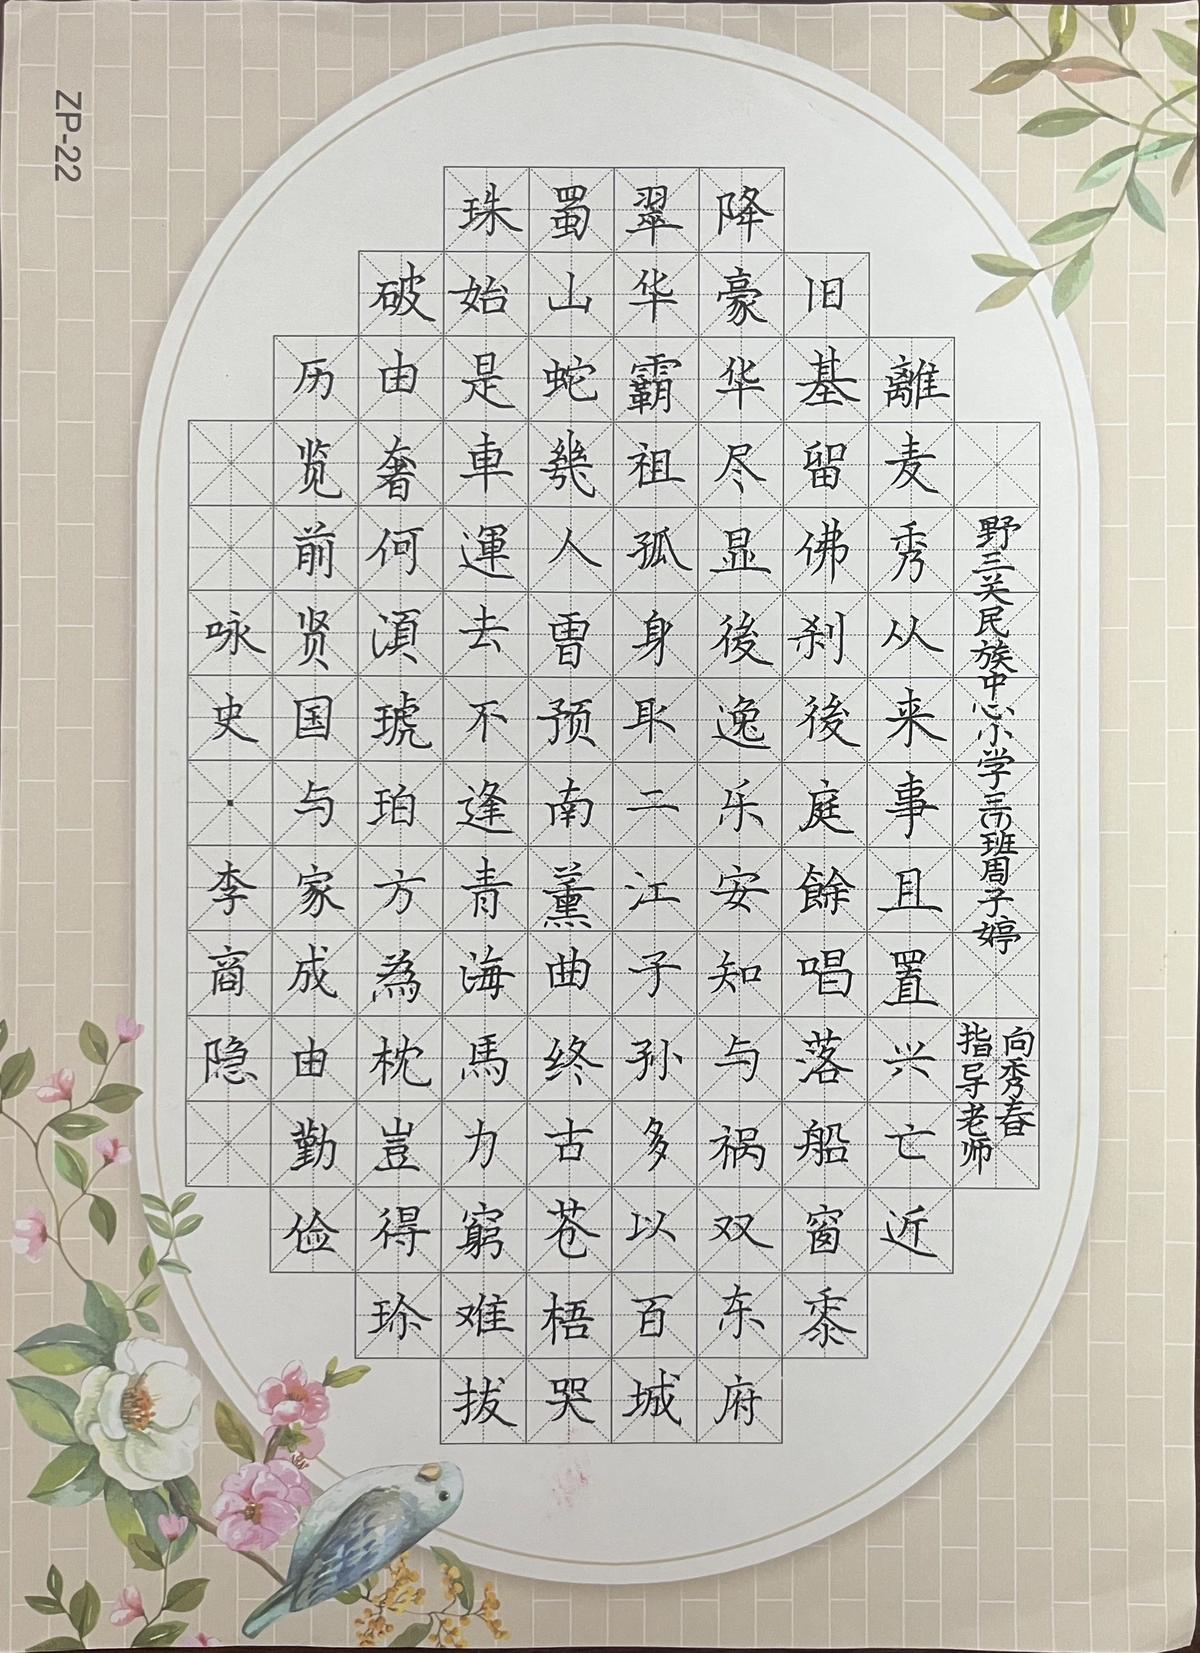 咏史·李商隐
历览前贤国与家成由勤俭
破由奢何湏琥珀方為枕豈得珍
珠始是車運去不逢青海馬力窮难拔
蜀山蛇幾人曾预南薰曲终古苍梧哭
翠华霸祖孤身取二江子孙多以百城
降豪华尽显後逸乐安知与祸双东府
旧基留佛刹後庭餘唱落船窗黍
離麦秀从来事且置兴亡近
野三关民族中心小学班周子婷
指导老师
向秀春
ZP-22